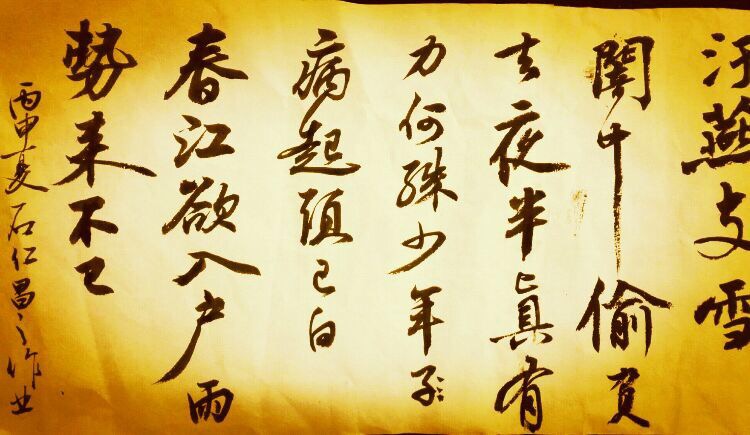 汙燕支雪
闇中偷負
去夜半真有
力何殊少年子
病起頭已白
春江欲入戶雨
勢来不已
丙申夏石仁昌之作业